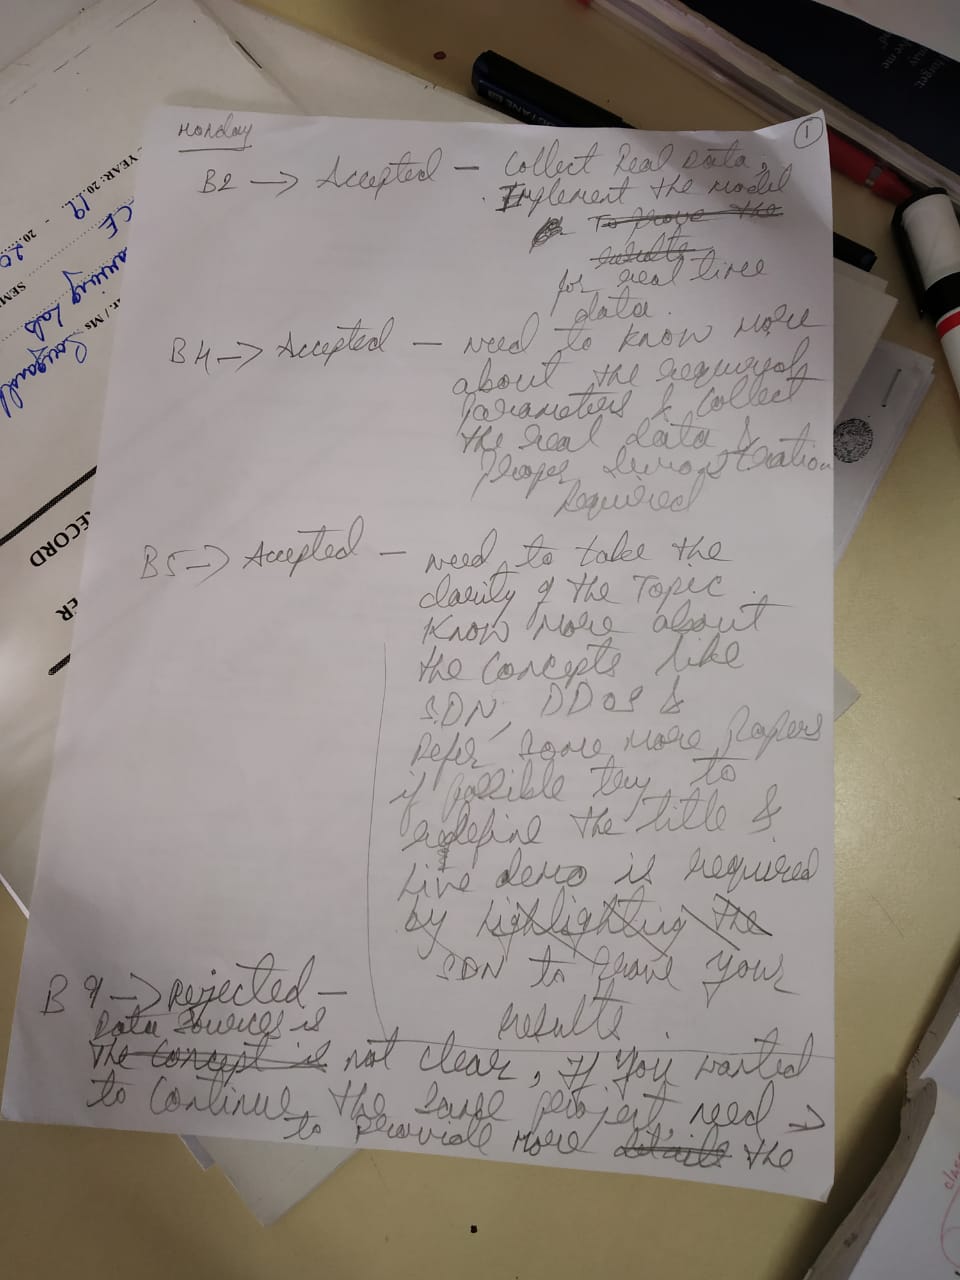 Monday
1
B2 -> Accepted - Collect Real Data,
Implement the model
To prove the
results
for real time
data.
B4 -> Accepted - need to know more
about the required
Parameters & Collect
the real data &
Proper demonstration
Required
B5 -> Accepted - need to take the
clarity of the Topic.
Know more about
the concepts like
SDN, DDoS &
Refer some more Papers
if possible try to
redefine the title &
Live demo is required
by highlighting the
SDN to prove your
results.
B9 -> Rejected -
Data Sources is
The concept is not clear, If you wanted
to continue the same project, need ->
to provide more details the
YEAR: 20.19 - 20.20
CE
SEM
Lab
RECORD
ER